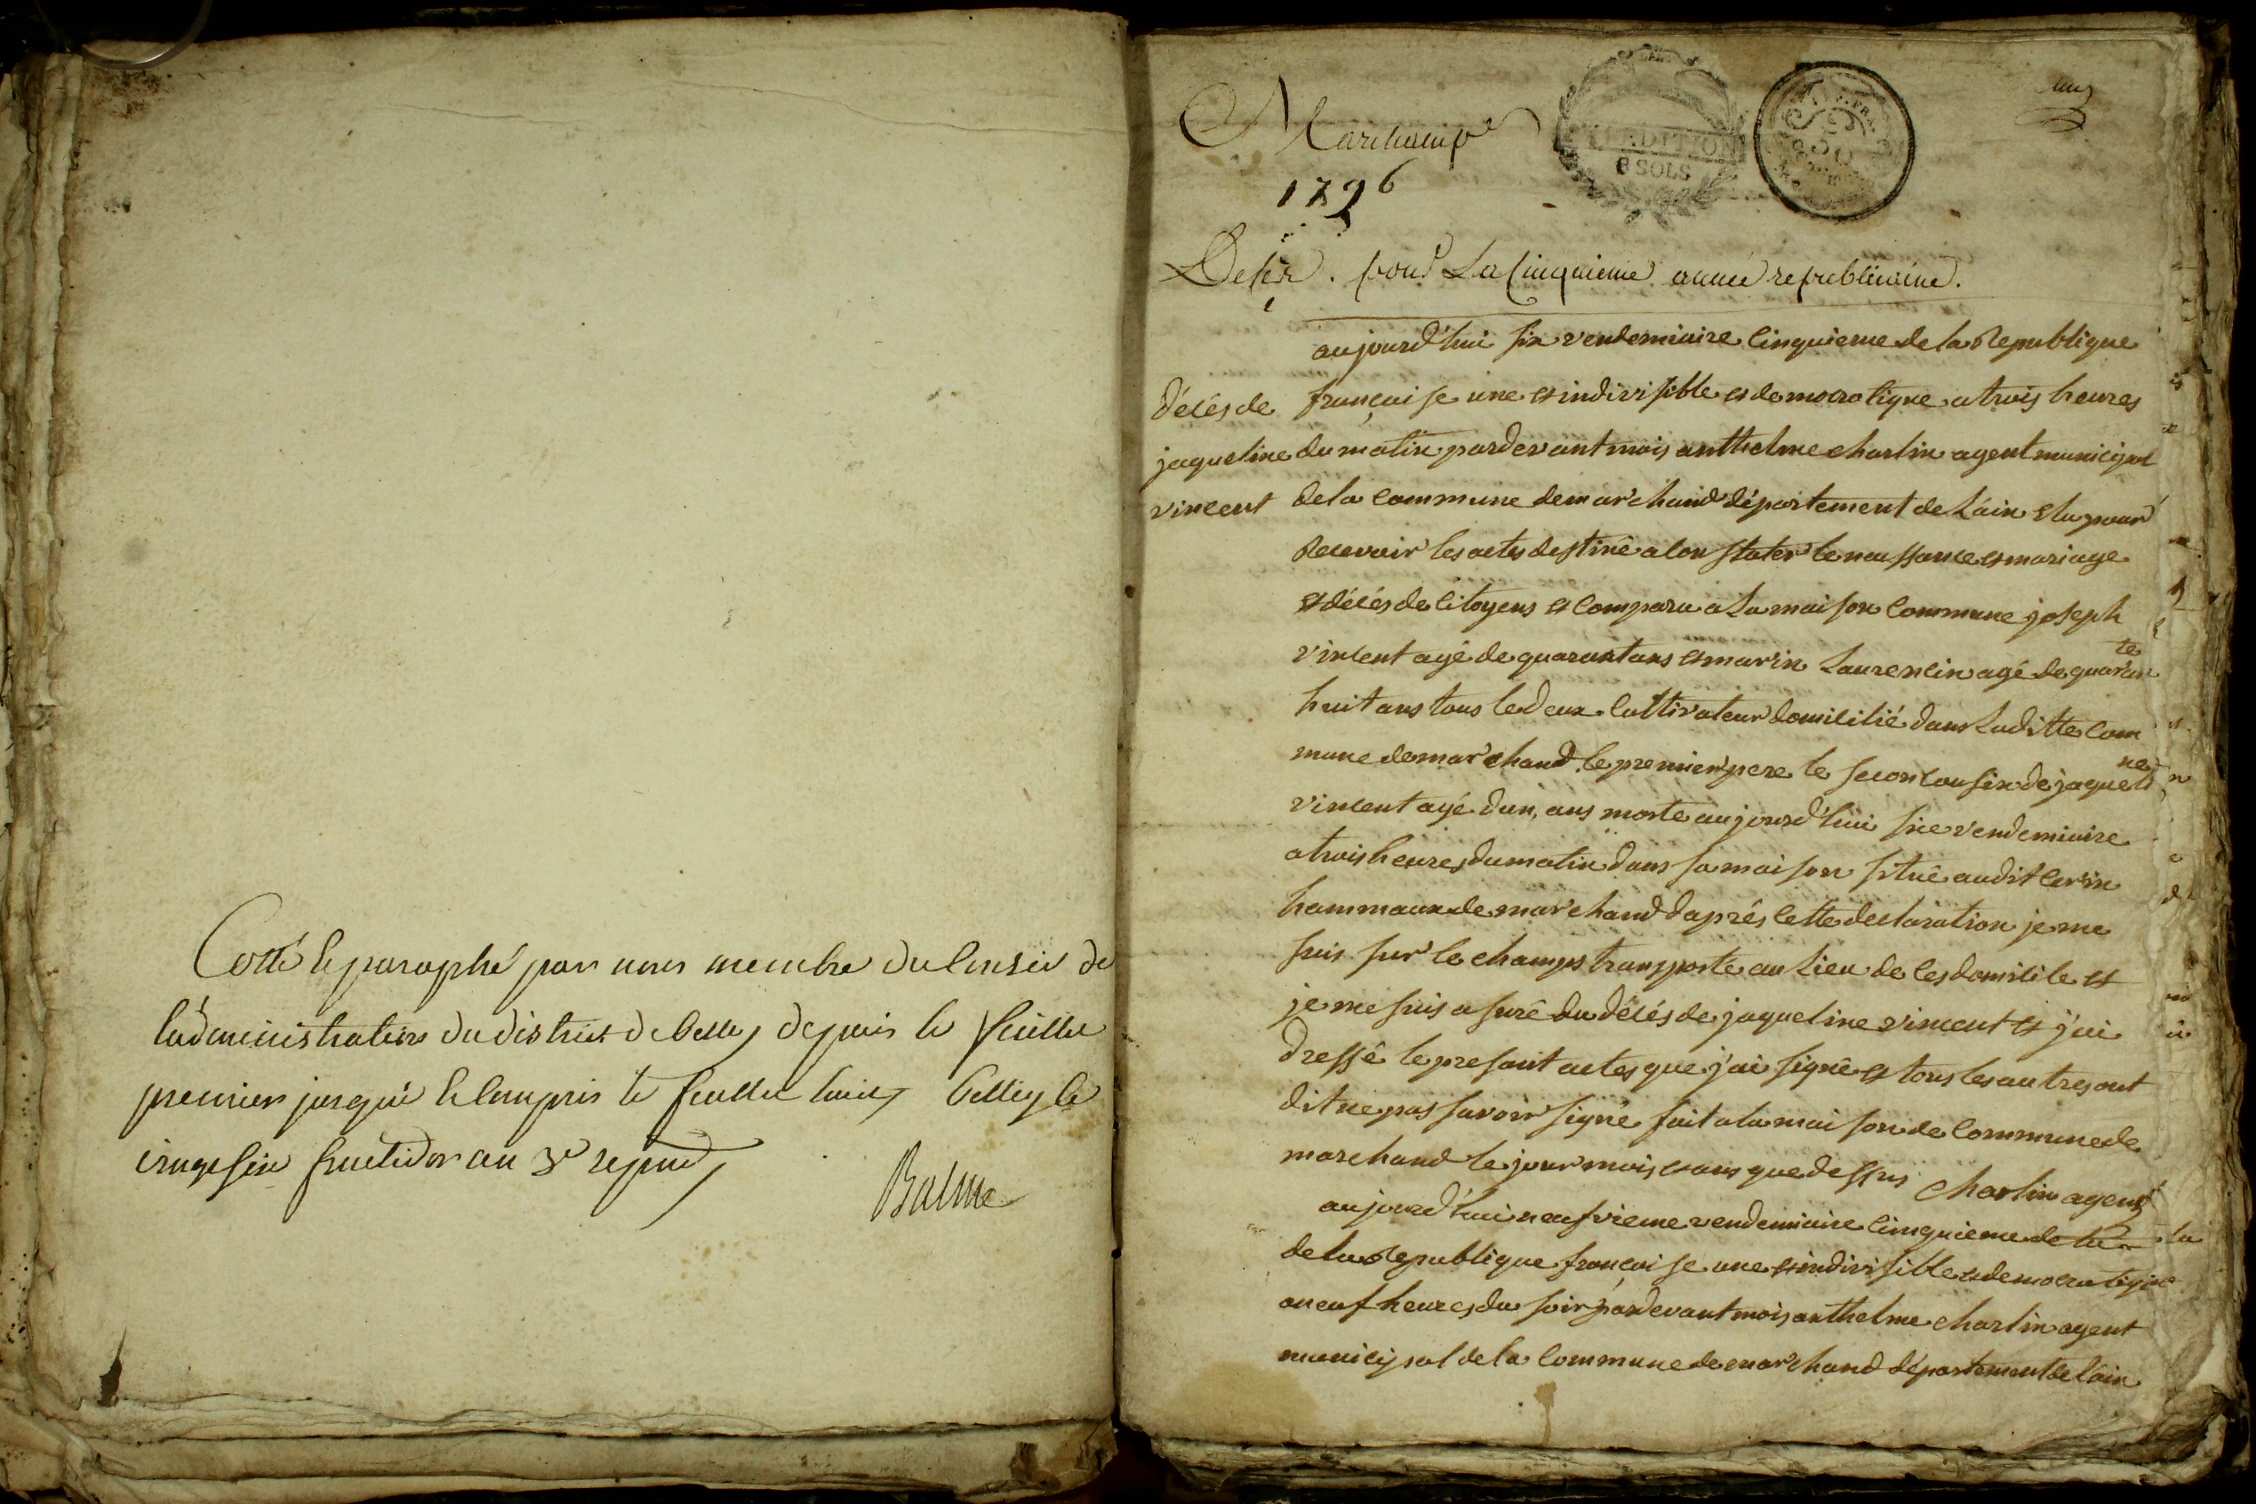 Cotté & paraphé par nous membre du Conseil de
l'administration du district de belley depuis le feuillet
premier jusqu'à & compris le feuillet huit, belley le
vingt six fructidor an 3e repud
Balme
un
Marchamp
EXPEDITION
6 SOLS
1796
Deses. pour La Cinquieme année republicaine.
décés de
jaqueline
vincent
aujourd'hui six vendemiaire Cinquieme de la Republique
françaife une et indivisible et democratique a trois heures
du matin pardevant mois anthelme charlin agent municipal
de la Commune de marchand département de L'ain elu pour
Recevoir les actes destiné a Constater le naissance et mariage
et décés de Citoyens et Comparu a La maison Commune joseph
vincent agé de quarantans et marin Laurencin agé de quarante
huit ans tous ledeux Cultivateur domicilié dans Laditte Com
mune de marchand le premier pere le secon Cousin de jaqueline
vincent agé dun, ans morte aujourd'hui sixe vendemiaire
a trois heures du matin dans sa maison situé audit Cerin
hammaux de marchand d'aprés Cette déclaration je me
suis sur le champs transporte au Lieu de Ces domicile et
je me suis asuré du décés de jaqueline vincent et j'ai
dressé le presant actes que j'ai signé et tous les autres ont
dit ne pas savoir signé fait a la maison de Commune de
marchand le jour mois et ans que dessus Charlin agent
aujourd'hui neufvieme vendemiaire Cinquieme de la
de la Republique française une et indivisible et democratique
a neuf heures du soir pardevant mois anthelme charlin agent
municipal de la Commune de marchand département de l'ain